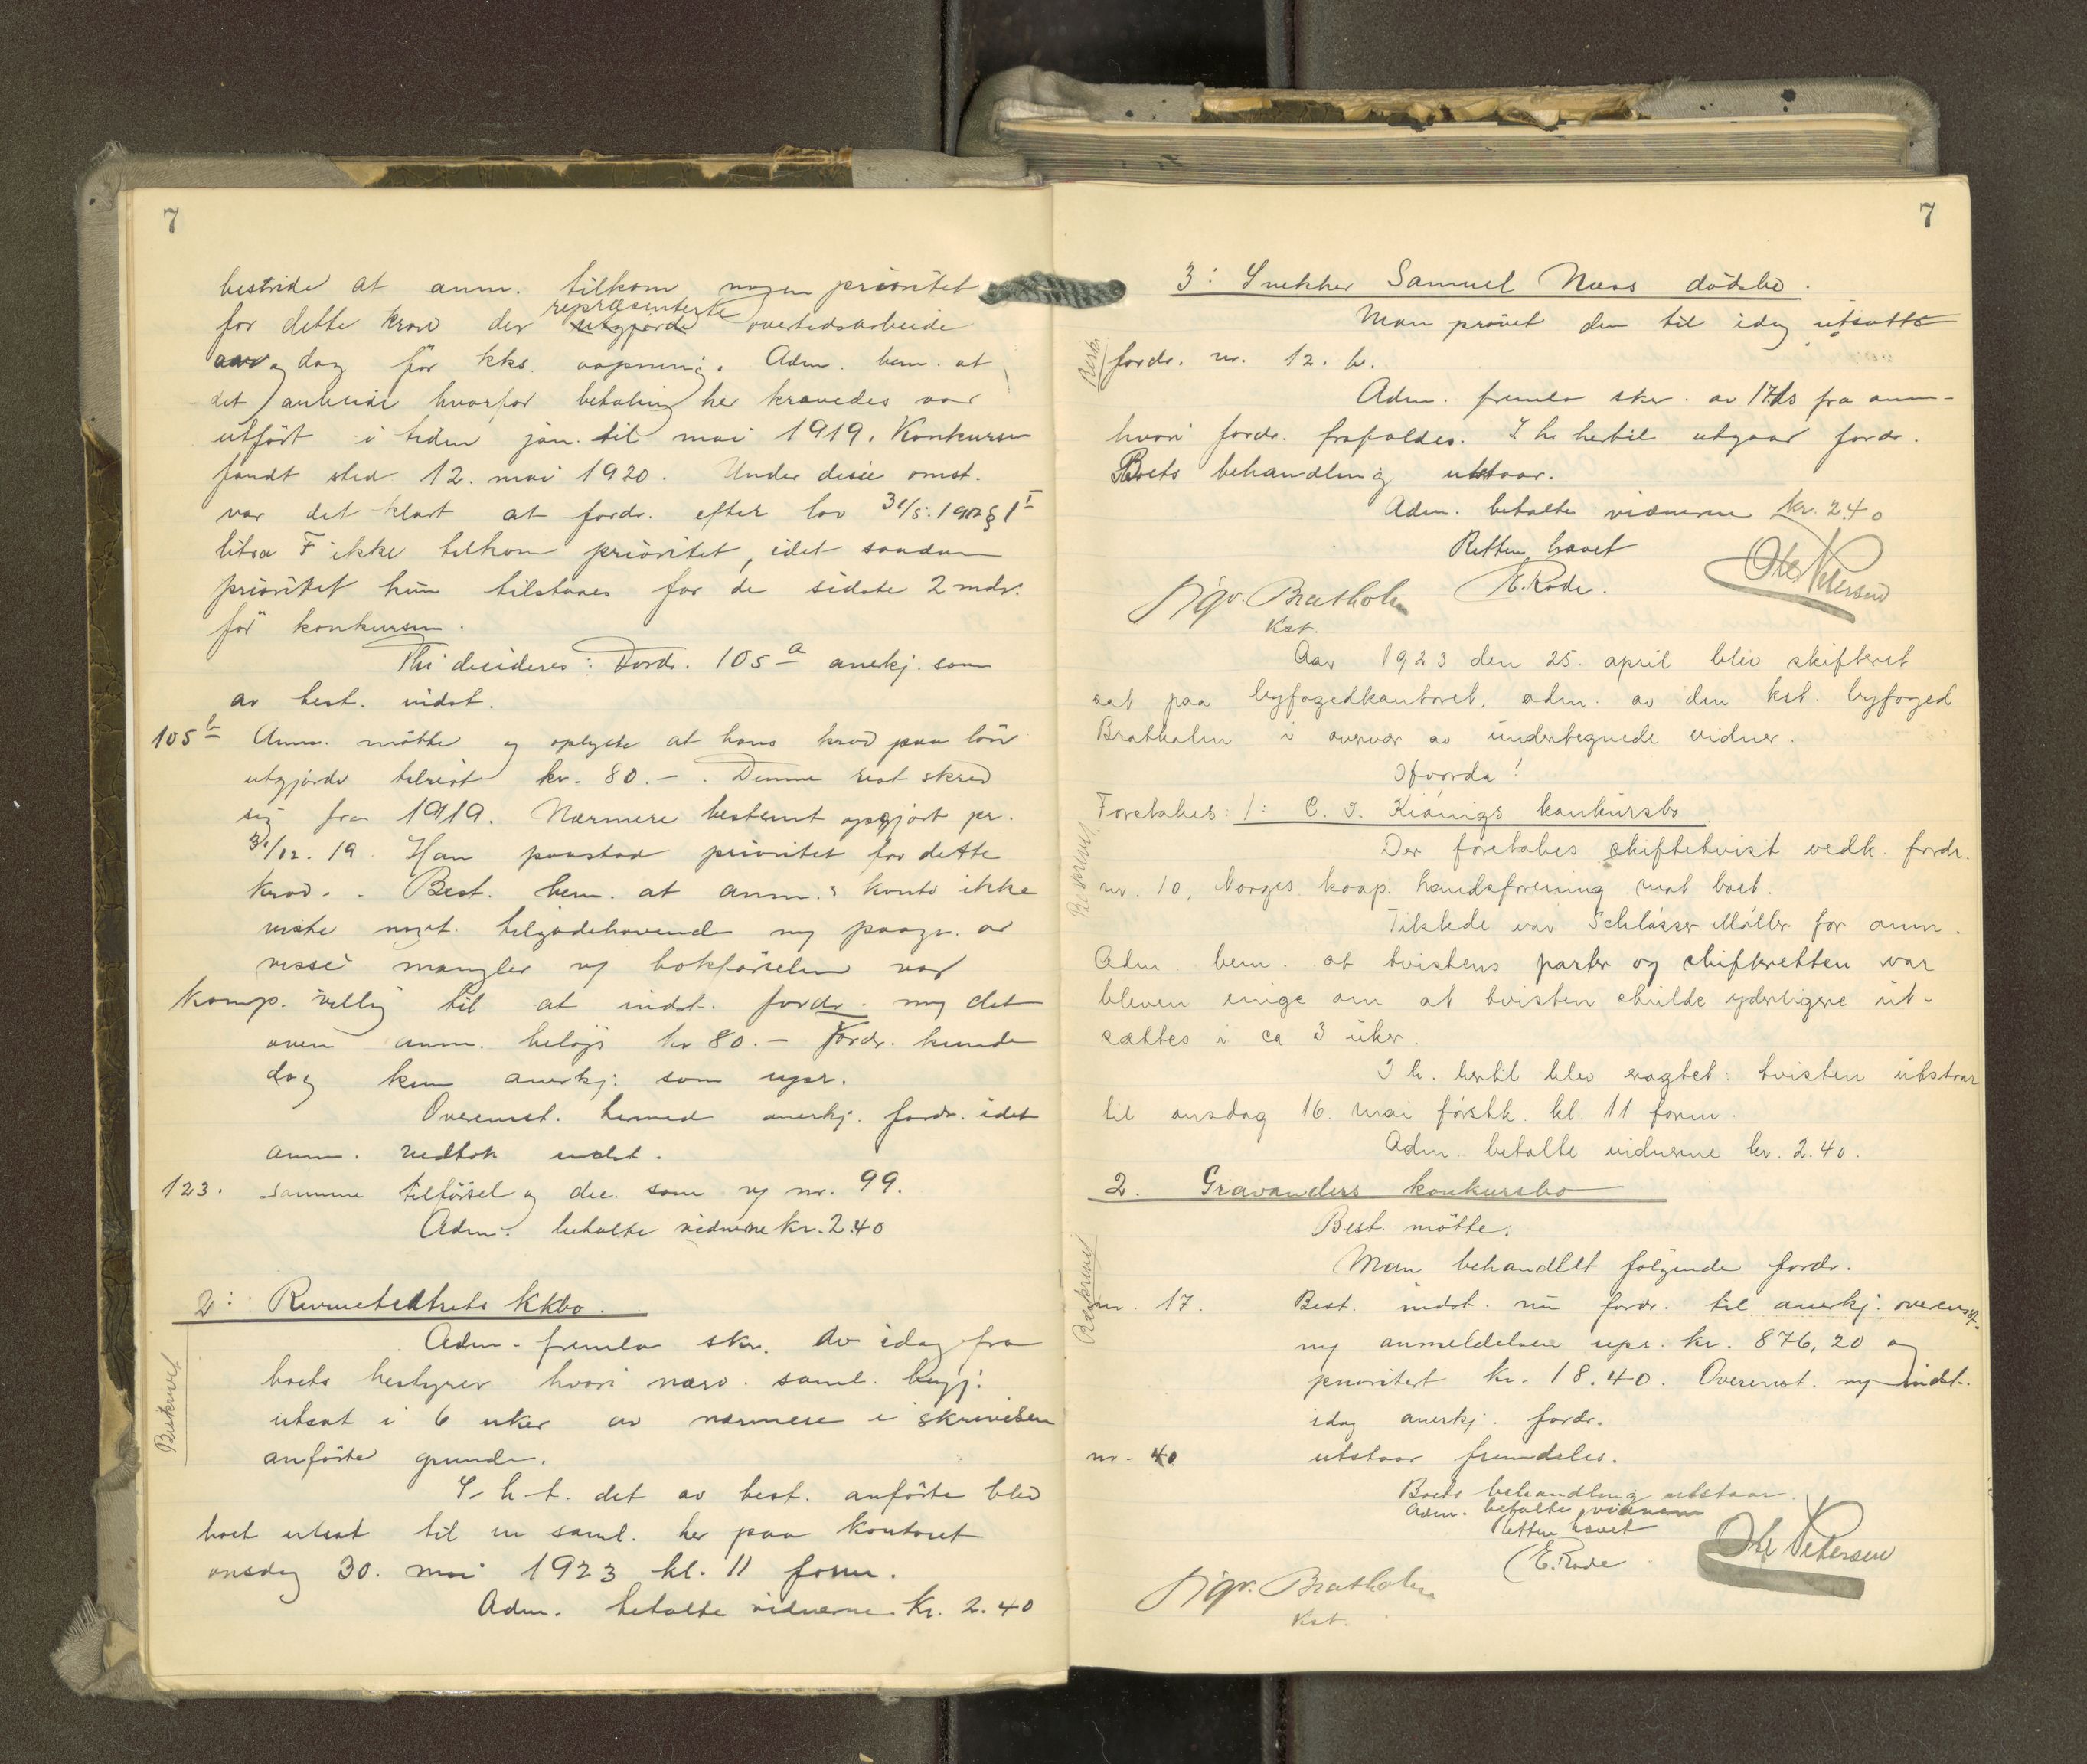 7
bestride at anm. tilkom nogen prioritet
for dette krav der repræsenterte overtidsarbeide
aar og dag för kks. aapning. Adm. bem. at
det arbeide hvorfor betaling her krævedes var
utfört i tiden jan. til mai 1919. Konkursen
fandt sted 12. mai 1920. Under disse omst.
var det klart at fordr. efter lov 31/5. 19 § 1
litra F ikke tilkom prioritet, idet saadan
prioritet kun tilstaaes for de sidste 2 mdr.
för konkursen.
Thi decideres: Fordr. 105 a anerkj. som
av best. indst.
105 b Anm. mötte og oplyste at hans krav paa lön
utgjorde tilrest kr. 80.-. Denne rest skrev
sig fra 1919. Nærmere bestemt opgjort pr.
31/12. 19. Han paastod prioritet for dette
krav. Best. bem. at anm.s konto ikke
viste noget tilgodehavende paagr. av
visse mangler bokförselen var
komp. villig til at indst. fordr. det
oven anm. belöp kr 80.- Fordr. kunde
dog kun anerkj. som upr.
Overenst. hermed anerkj. fordr. idet
anm. vedtok indst.
123. Samme tilförsel og dec. som nr. 99.
Adm. betalte vidnerne kr. 2.40
2: kkbo.
Beskrevet
Adm. fremla skr. av idag fra
boets bestyrer hvori nærv. saml. begj.
utsat i 6 uker av nærmere i skrivelsen
anförte grunde.
I h. t. det av best. anförte blev
boet utsat til en saml. her paa kontoret
onsdag 30. mai 1923 kl. 11 form.
Adm. betalte vidnerne kr. 2.40
7
3: Snekker Samuel Næss dödsbo.
Man prövet den til idag utsatte
Beskr.
fordr. nr. 12. b.
Adm. fremla skr. av 17. ds fra anm-
hvori fordr. frafaldes. I h. hertil utgaar fordr.
Boets behandling utstaar.
Adm. betalte vidnerne kr. 2.40
Retten hævet
Sigv. Bratholm E. Rode. Petersen
Kst.
Aar 1923 den 25. april blev skifteret
sat paa byfogedkontoret, adm. av den kst. byfoged
Bratholm i overvær av undertegnede vidner.
Hvorda!
Foretokes: 1: C. I. konkursbo
Der foretokes skiftetvist vedk. fordr.
Beskrevet
nr. 10, Norges koop. handsforening mot boet.
Tilstede var Schlösser Möller for anm.
Adm. bem. at tvistens parter og skifteretten var
bleven enige om at tvisten skulde yderligere ut-
sættes i ca 3 uker.
I h. hertil blev eragtet: tvisten utstaar
til onsdag 16. mai förstk. kl. 11 form.
Adm. betalte vidnerne kr. 2.40.
2. Gravanders konkursbo
Best. mötte.
Man behandlet fölgende fordr.
Beskrevet
nr. 17. Best. indst. nu fordr. til anerkj. overenst.
anmeldelsen upr. kr. 876,20 og
prioritert kr. 18.40. Overenst. indst.
idag anerkj. fordr.
nr. 40 utstaar fremdeles.
Boets behandling utstaar.
Adm. betalte vidnerne
Retten hævet
E. Rode Petersen
Sigv. Bratholm
Kst.